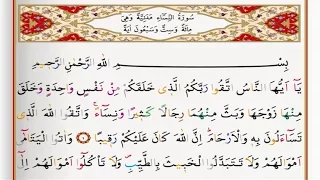 سُورَةُ النِّسَاءِ مَدَنِيَّةٌ وَهِيَ
مِائَةٌ وَسِتٌّ وَسَبْعُونَ آيَةً
بِسْمِ اللّٰهِ الرَّحْمٰنِ الرَّحِيمِ
يَٓا اَيُّهَا النَّاسُ اتَّقُوا رَبَّكُمُ الَّذ۪ي خَلَقَكُمْ مِنْ نَفْسٍ وَاحِدَةٍ وَخَلَقَ
مِنْهَا زَوْجَهَا وَبَثَّ مِنْهُمَا رِجَالًا كَث۪يرًا وَنِسَٓاءًۚ وَاتَّقُوا اللّٰهَ الَّذ۪ي
تَسَٓاءَلُونَ بِه۪ وَالْاَرْحَامَۜ اِنَّ اللّٰهَ كَانَ عَلَيْكُمْ رَق۪يبًا ۝١ وَاٰتُوا الْيَتَامٰٓى
اَمْوَالَهُمْ وَلَا تَتَبَدَّلُوا الْخَب۪يثَ بِالطَّيِّبِۖ وَلَا تَأْكُلُٓوا اَمْوَالَهُمْ اِلٰٓى